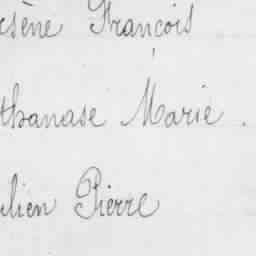 rsène François
thanase Marie.
ulien Pierre